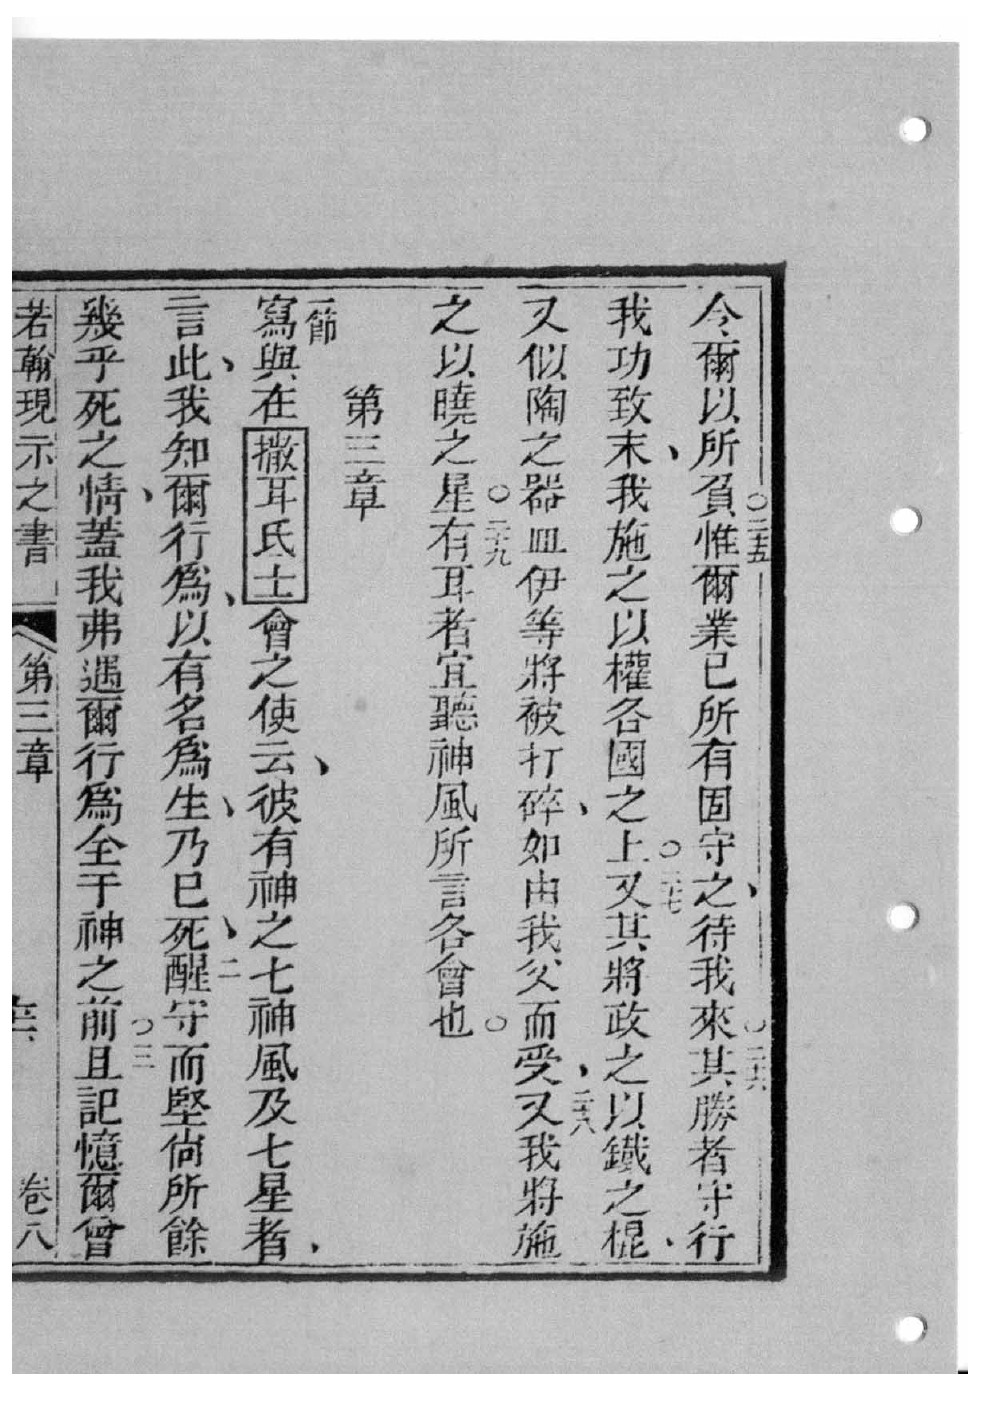 今爾以所負惟爾業已所有固守之、待我來○二十六其勝者守行
我功致末、我施之以權各國之上○二十七又其將政之以鐵之棍、
又似陶之器皿伊等將被打碎、如由我父而受、二十八又我將施
之以曉之星○二十九有耳者宜聽神風所言各會也○
第三章
一節寫與在撒耳氏士會之使云、彼有神之七神風及七星者、
言此、我知爾行爲、以有名爲生、乃已死、二醒守而堅尙所餘
幾乎死之情、蓋我弗遇爾行爲全于神之前○三且記憶爾曾
若翰現示之書 第三章 卷八